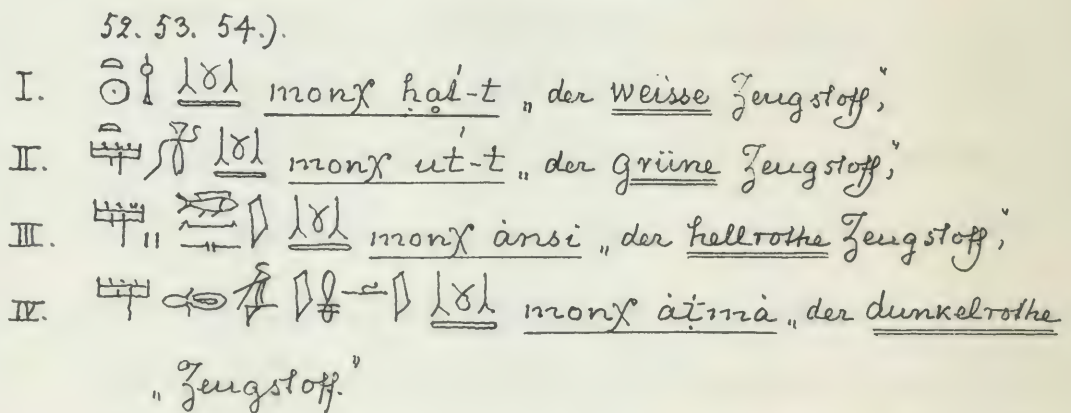 52. 53. 54.).
I. monχ ḥať-t „der weisse Zeugstoff,"
II. monχ uť-t „der grüne Zeugstoff,"
III. monχ ànsi „der hellrothe Zeugstoff,"
IV. monχ àṭmà „der dunkelrothe
„Zeugstoff."